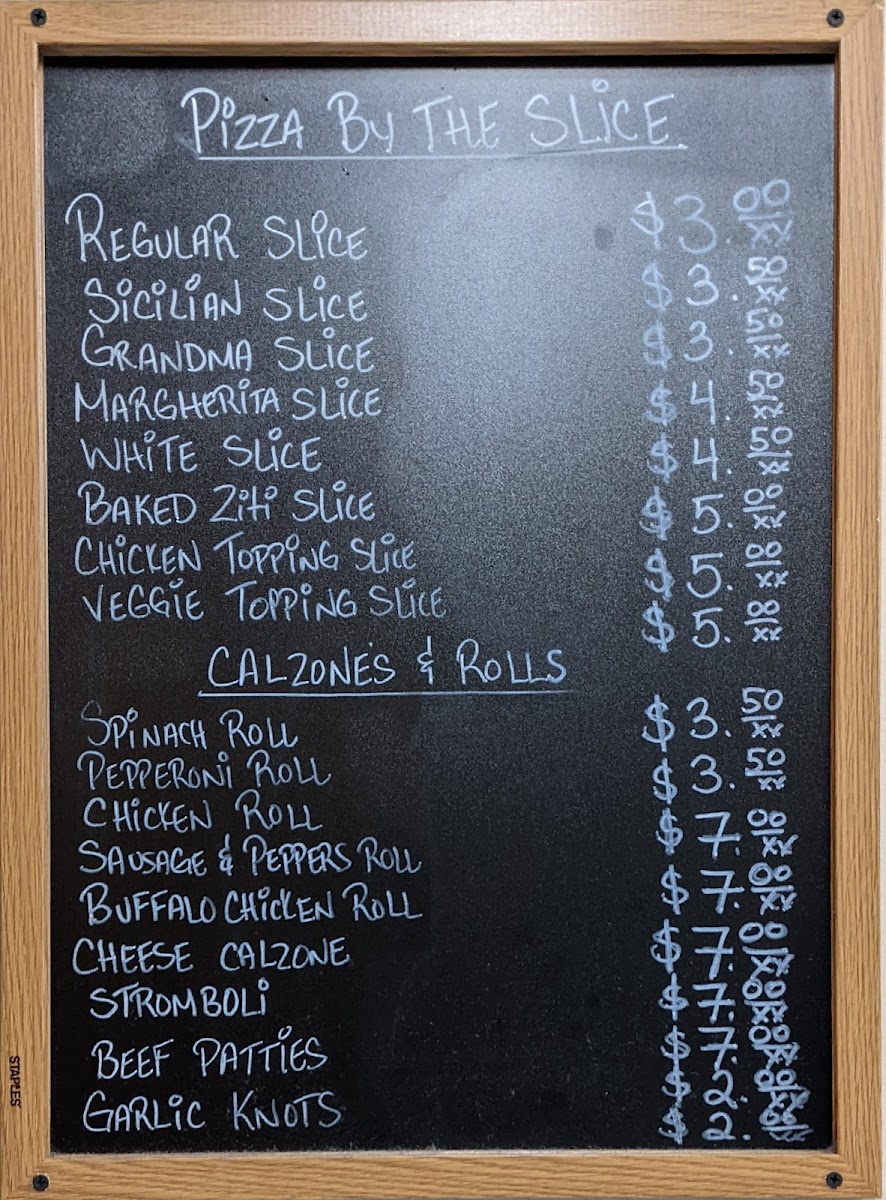 PIZZA BY THE SLICE
REGULAR SLICE $3. 00/xx
SICILIAN SLICE $3. 50/xx
GRANDMA SLICE $3. 50/xx
MARGHERITA SLICE $4. 50/xx
WHITE SLICE $4. 50/xx
BAKED ZITI SLICE $5. 00/xx
CHICKEN TOPPING SLICE $5. 00/xx
VEGGIE TOPPING SLICE $5. 00/xx
CALZONE'S & ROLLS
SPINACH ROLL $3. 50/xx
PEPPERONI ROLL $3. 50/xx
CHICKEN ROLL $7. 00/xx
SAUSAGE & PEPPERS ROLL $7. 00/xx
BUFFALO CHICKEN ROLL $7. 00/xx
CHEESE CALZONE $7. 00/xx
STROMBOLI $7. 00/xx
BEEF PATTIES $2. 00/xx
GARLIC KNOTS $2.
STAPLES